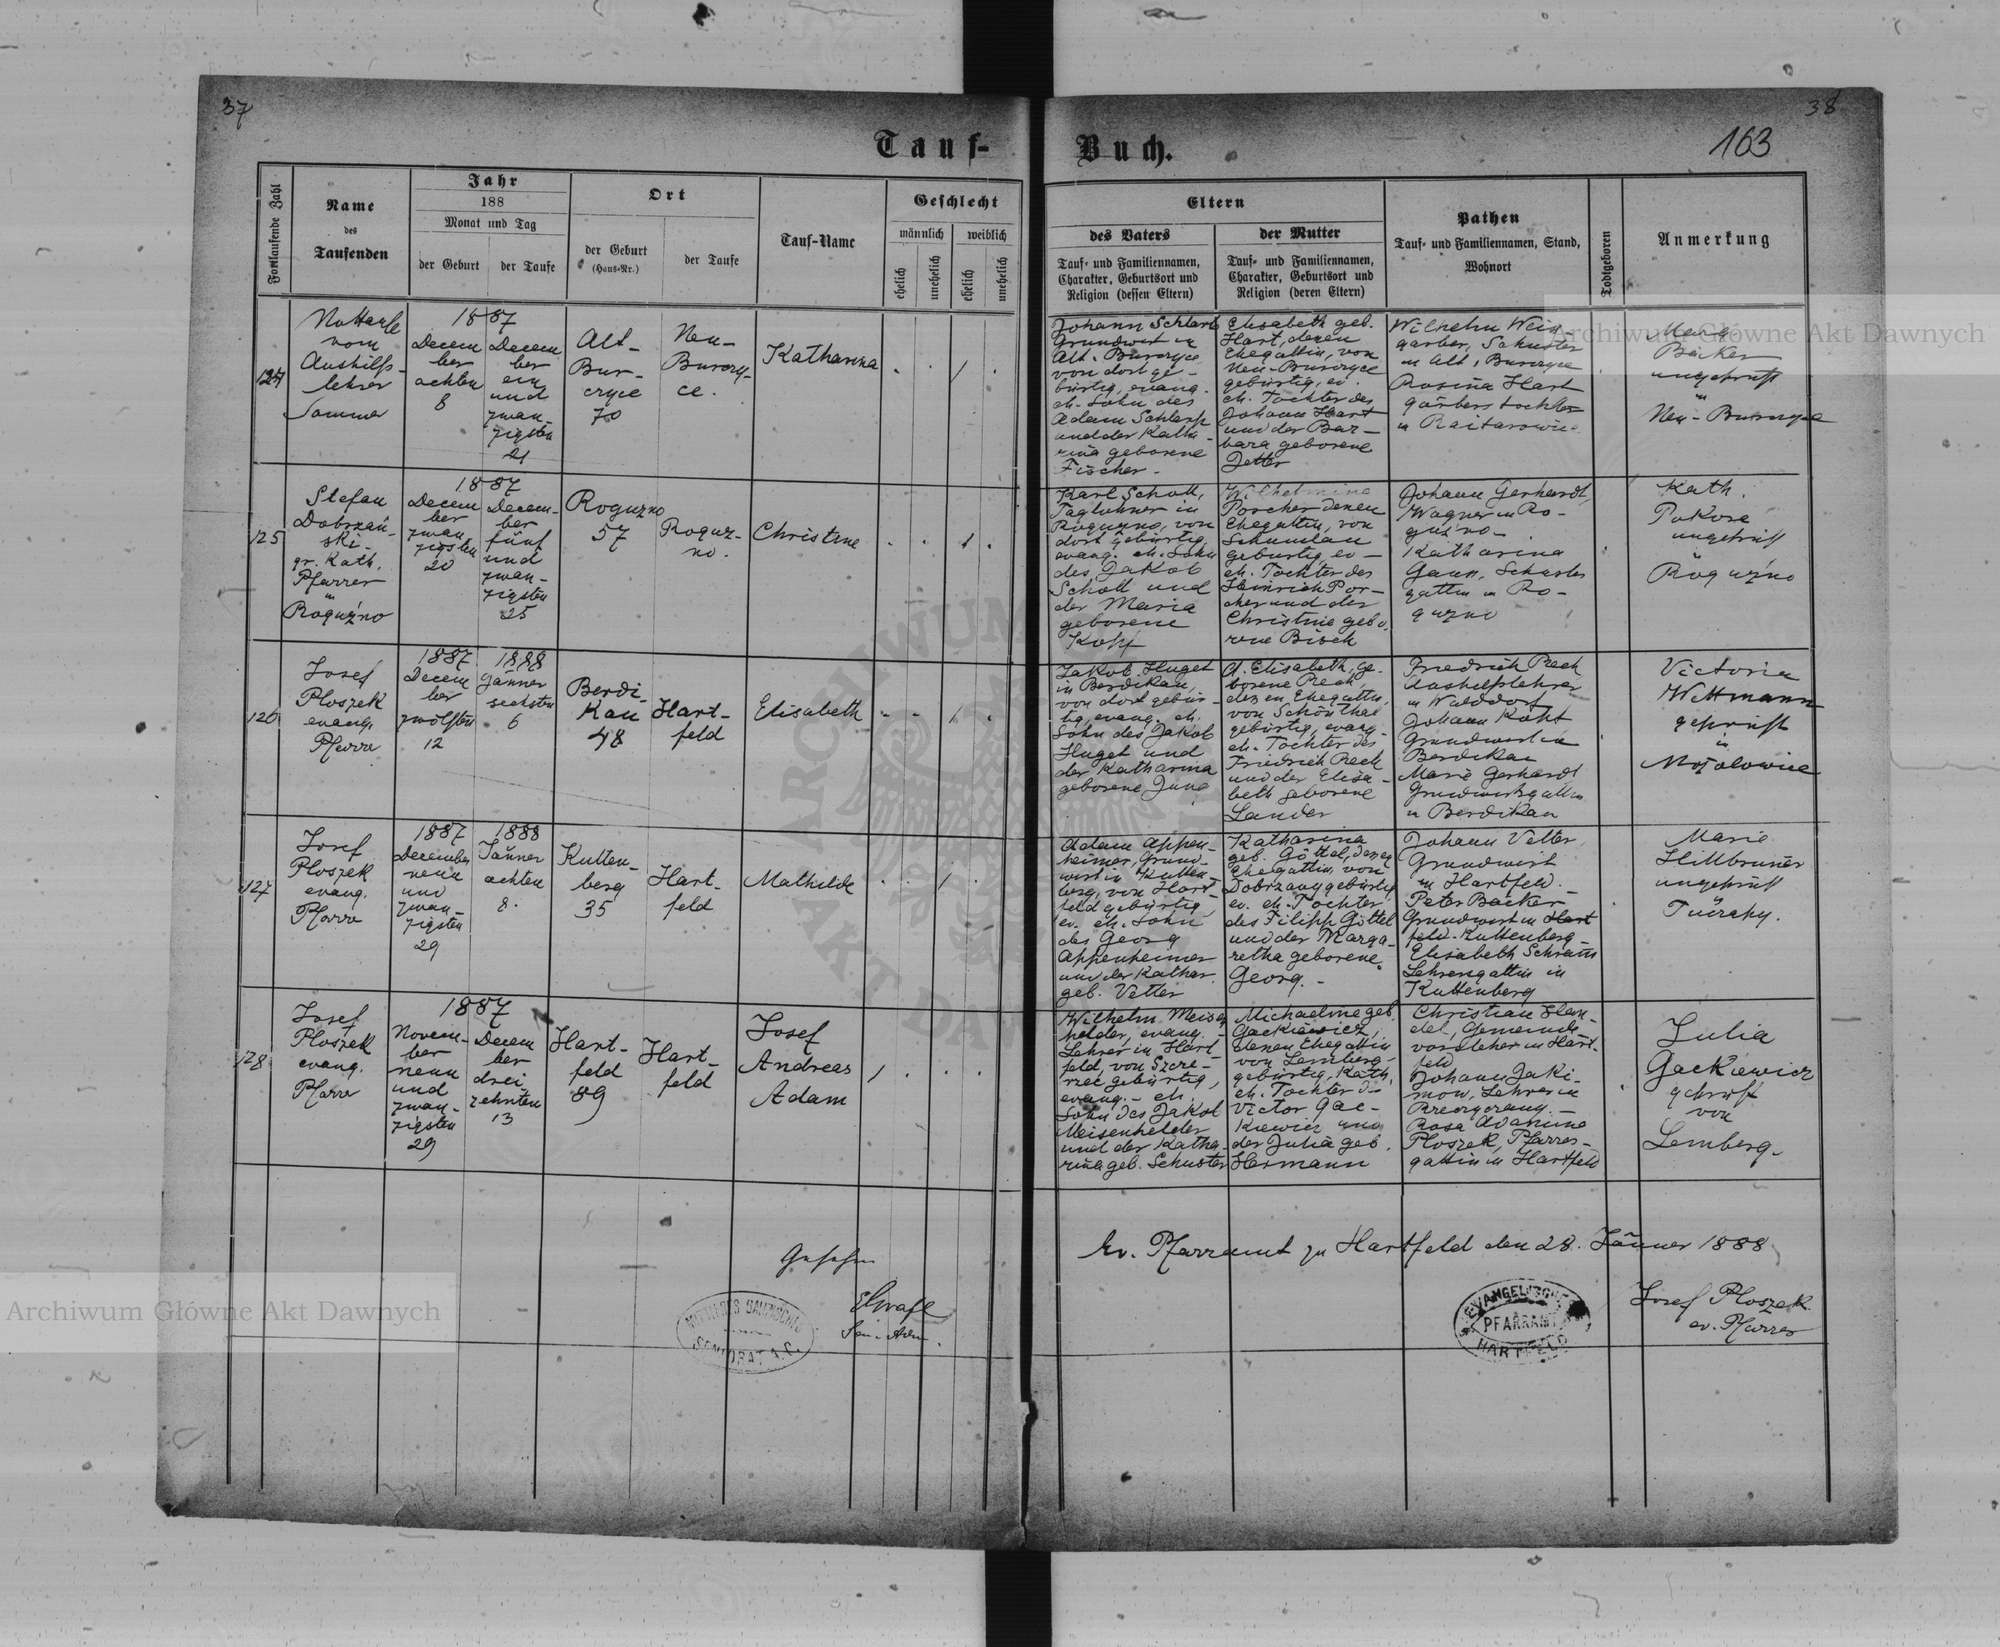 37
38
163
Tauf-
Buch.
Fortlaufende Zahl
Name
des
Taufenden
Jahr
188
Monat und Tag
der Geburt
der Taufe
Ort
der Geburt
(Haus-Nr.)
der Taufe
Tauf-Name
Geschlecht
männlich
weiblich
ehelich
unehelich
ehelich
unehelich
Eltern
des Vaters
Tauf- und Familiennamen,
Charakter, Geburtsort und
Religion (dessen Eltern)
der Mutter
Tauf- und Familiennamen,
Charakter, Geburtsort und
Religion (deren Eltern)
Pathen
Tauf- und Familiennamen, Stand,
Wohnort
Todtgeboren
Anmerkung
124
vom
Aushilfs-
lehrer
Sommer
1887
Decem
ber
achten
8
Decem
ber
ein
und
zwan-
zigsten
21
Alt-
Bur-
czyce
70
Neu-
Burczy-
ce.
Katharina
Johann Scherb
Grundwirt in
Alt-Burczyce
von dort ge-
bürtig, evang.
eh. Sohn des
Adam
und der Katha-
rina geborene
Fischer.
Elisabeth geb.
Hart, denen
Ehegattin, von
Neu-Burczyce
gebürtig, ev.
eh. Tochter des
Johann Hart
und der Bar-
bara geborene
Jetter
Wilhelm Wein-
garber, Schuster
in Alt-Burczyce
Rosina Hart
in Raitarowice
Bäcker
ungeprüft
in
Neu-Burczyce
125
Stefan
Dobrzań-
ski-
gr. Kath.
Pfarrer
in
Roguźno
1887
Decem
ber
zwan-
zigsten
20
Decem-
ber
fünf
und
zwan-
zigsten
25
Roguzno
57
Roguz-
no.
Christine
Karl Scholl,
Taglohner in
Roguzno, von
dort gebürtig,
evang. eh. Sohn
des Jakob
Scholl und
der Maria
geborene
Kopf
Wilhelmina
Porcher denen
Ehegattin, von
Schumlau
gebürtig, ev-
eh. Tochter des
Heinrich Por-
cher und der
Christine gebo-
rene Bisch
Johann Gerhardt,
Wagner in Ro-
guźno-
Katharina
Gann, Schusters
gattin in Ro-
guzno
Kath.
Pokora
ungeprüft
Roguźno
126
Josef
Ploszek
evang.
Pfarrer
1887
Decem
ber
zwölften
12
1888
Jänner
sechsten
6
Berdi-
kau
48
Hart-
feld
Elisabeth
Jakob Huget
in Berdikau,
von dort gebür-
tig, evang. eh.
Sohn des Jakob
Huget und
der Katharina
geborene Jung
A. Elisabeth, ge-
borene Rech,
denen Ehegattin,
von Schönthal
gebürtig, evang-
eh. Tochter des
Friedrich Rech
und der Elisa-
beth geborene
Lander
Friedrich Rech
Aushilfslehrer
in Walddorf
Johann Kopf
Grundwirt in
Berdikau
Marie Gerhardt
Grundwirtsgattin
in Berdikau
Victoria
Wittmann
geprüft
in
127
Josef
Ploszek
evang.
Pfarrer
1887
December
neun
und
zwan-
zigsten
29
1888
Jänner
achten
8.
Kutten-
berg
35
Hart-
feld
Mathilde
Adam Appen-
heimer, Grund-
wirt in Kutten-
berg, von Hart-
feld gebürtig,
ev. eh. Sohn
des Georg
Appenheimer
und der Kathar.
geb. Vetter
Katharina
geb. Göttel, denen
Ehegattin, von
Dobrzany gebürtig
ev. eh. Tochter
des Filipp Göttel
und der Marga-
retha geborene
Georg.-
Johann Vetter,
Grundwirt
in Hartfeld.-
Peter Backer
Grundwirt in Hart
feld-Kuttenberg-
Elisabeth Schram
Lehrersgattin in
Kuttenberg
Marie
Hillbruner
ungeprüft
Tuczapy.
128
Josef
Ploszek
evang.
Pfarrer
1887
Novem-
ber
neun
und
zwan-
zigsten
29
Decem
ber
drei
zehnten
13
Hart-
feld
89
Hart-
feld
Josef
Andreas
Adam
Wilhelm Meisen
helder, evang.-
Lehrer in Hart-
feld, von Szcze-
rzec gebürtig,
evang.- eh.
Sohn des Jakob
Meisenhelder
und der Katha-
rina geb. Schuster
Michaeline geb.
Gackiewicz,
denen Ehegattin
von Lemberg
gebürtig, Kath.
eh. Tochter d.
Victor Gac-
kiewicz und
der Julia geb.
Hermann
Christian Han-
del, Gemeinde-
vorsteher in Hart-
feld
Johann Jaki-
mow, Lehrer in
Rosa Adamine
Ploszek, Pfarrers-
gattin in Hartfeld
Julia
Gackiewicz
geprüft
von
Lemberg.
Gesehen
Ev. Pfarramt zu Hartfeld den 28. Jänner 1888
EVANGELISCHES
PFARRAMT
HARTFELD
Josef Ploszek
ev. Pfarrer
SENIORAT A.C.
Archiwum Główne Akt Dawnych
Archiwum Główne Akt Dawnych
ARCHIWUM
AKT DA